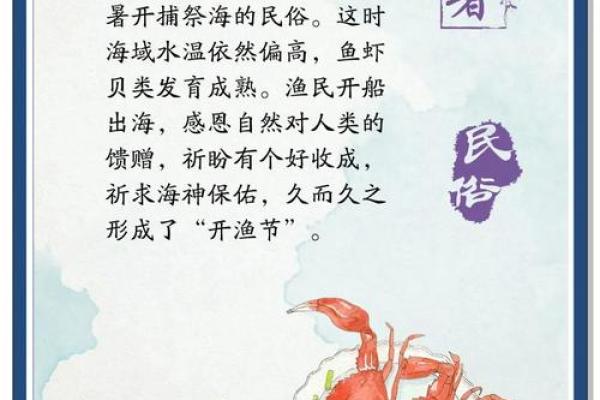 暑开捕祭海的民俗。这时
海域水温依然偏高，鱼虾
贝类发育成熟。渔民开船
出海，感恩自然对人类的
馈赠，祈盼有个好收成，
祈求海神保佑，久而久之
形成了“开渔节”。
民俗